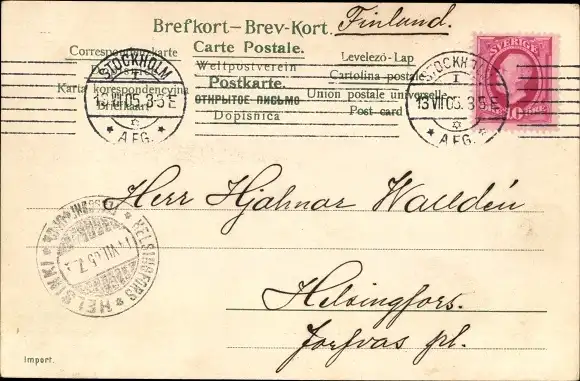 Brefkort–Brev-Kort.
Finland.
Correspondenzkarte
Carte Postale.
Levelezö-Lap
Weltpostverein
Cartolina postale
Karta korespondencyjna
Postkarte.
Union postale universelle
Briefkaart
ОТКРЫТОЕ ПИСЬМО
Post-card
Dopisnica
STOCKHOLM
1
13.VII.05. 3-5 E
AFG.
STOCKHOLM
1
13 VII 05. 3-5 E
AFG.
SVERIGE
10 ÖRE
Herr Hjalmar Walldén
HELSINGFORS
HELSINKI
VII.05
Helsingfors.
pl.
Import.